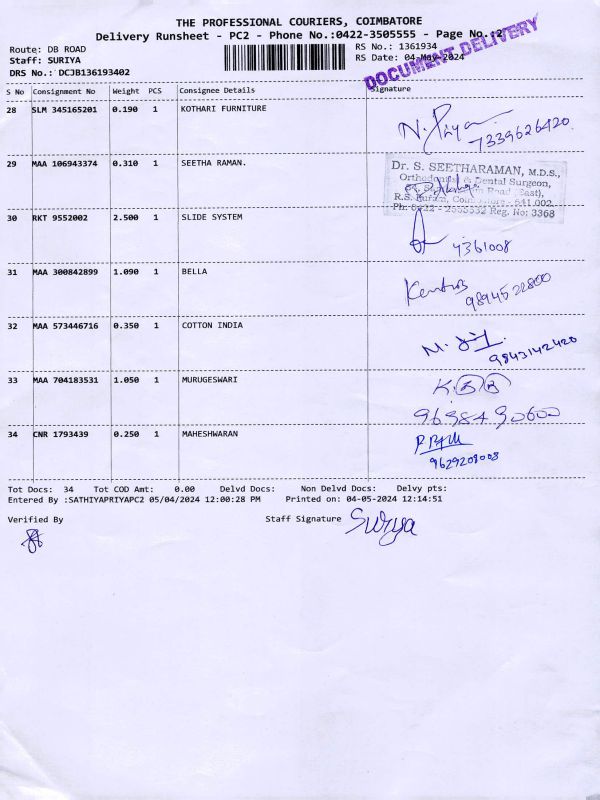 THE PROFESSIONAL COURIERS, COIMBATORE
Delivery Runsheet - PC2 - Phone No.:0422-3505555 - Page No.:2
Route: DB ROAD
Staff: SURIYA
DRS No.: DCJB136193402
RS No.: 1361934
RS Date: 04-May-2024
DOCUMENT DELIVERY
S No Consignment No Weight PCS Consignee Details Signature
28 SLM 345165201 0.190 1 KOTHARI FURNITURE
N. Priya
7339626420
29 MAA 106943374 0.310 1 SEETHA RAMAN.
Dr. S. SEETHARAMAN, M.D.S.,
Orthodontist & Dental Surgeon,
Road (East),
R.S. Puram, Coimbatore - 641 002.
Reg. No: 3368
30 RKT 9552002 2.500 1 SLIDE SYSTEM
4361008
31 MAA 300842899 1.090 1 BELLA
9894522800
32 MAA 573446716 0.350 1 COTTON INDIA
9843142420
33 MAA 704183531 1.050 1 MURUGESWARI
34 CNR 1793439 0.250 1 MAHESHWARAN
9629208008
Tot Docs: 34 Tot COD Amt: 0.00 Delvd Docs: Non Delvd Docs: Delvy pts:
Entered By :SATHIYAPRIYAPC2 05/04/2024 12:00:28 PM Printed on: 04-05-2024 12:14:51
Verified By
Staff Signature Suriya